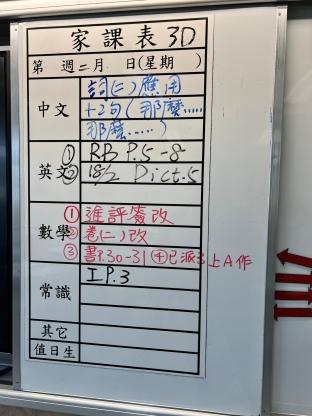 家課表 3D
第 週二月 日(星期 )
中文 詞(二)應用
+2句(那麼……
那麼……)
英文 ① RB P.5-8
② 18/2 Dict.5
數學 ① 進評簽改
② 卷(二)改
③ 書P.30-31 ④已派3上A作
常識 I P.3
其它
值日生